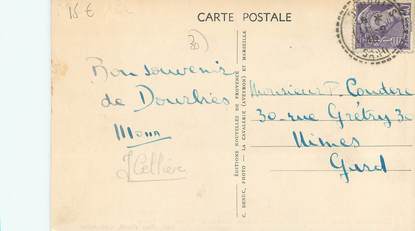 15 €
CARTE POSTALE
Bon souvenir
de Dourbies
Mona
Monsieur F. Couderc
30 rue Grétry 30
Nimes
Gard
EDITIONS NOUVELLES DE PROVENCE
C. BERUC, PHOTO - LA CAVALERIE (AVEYRON) ET MARSEILLE